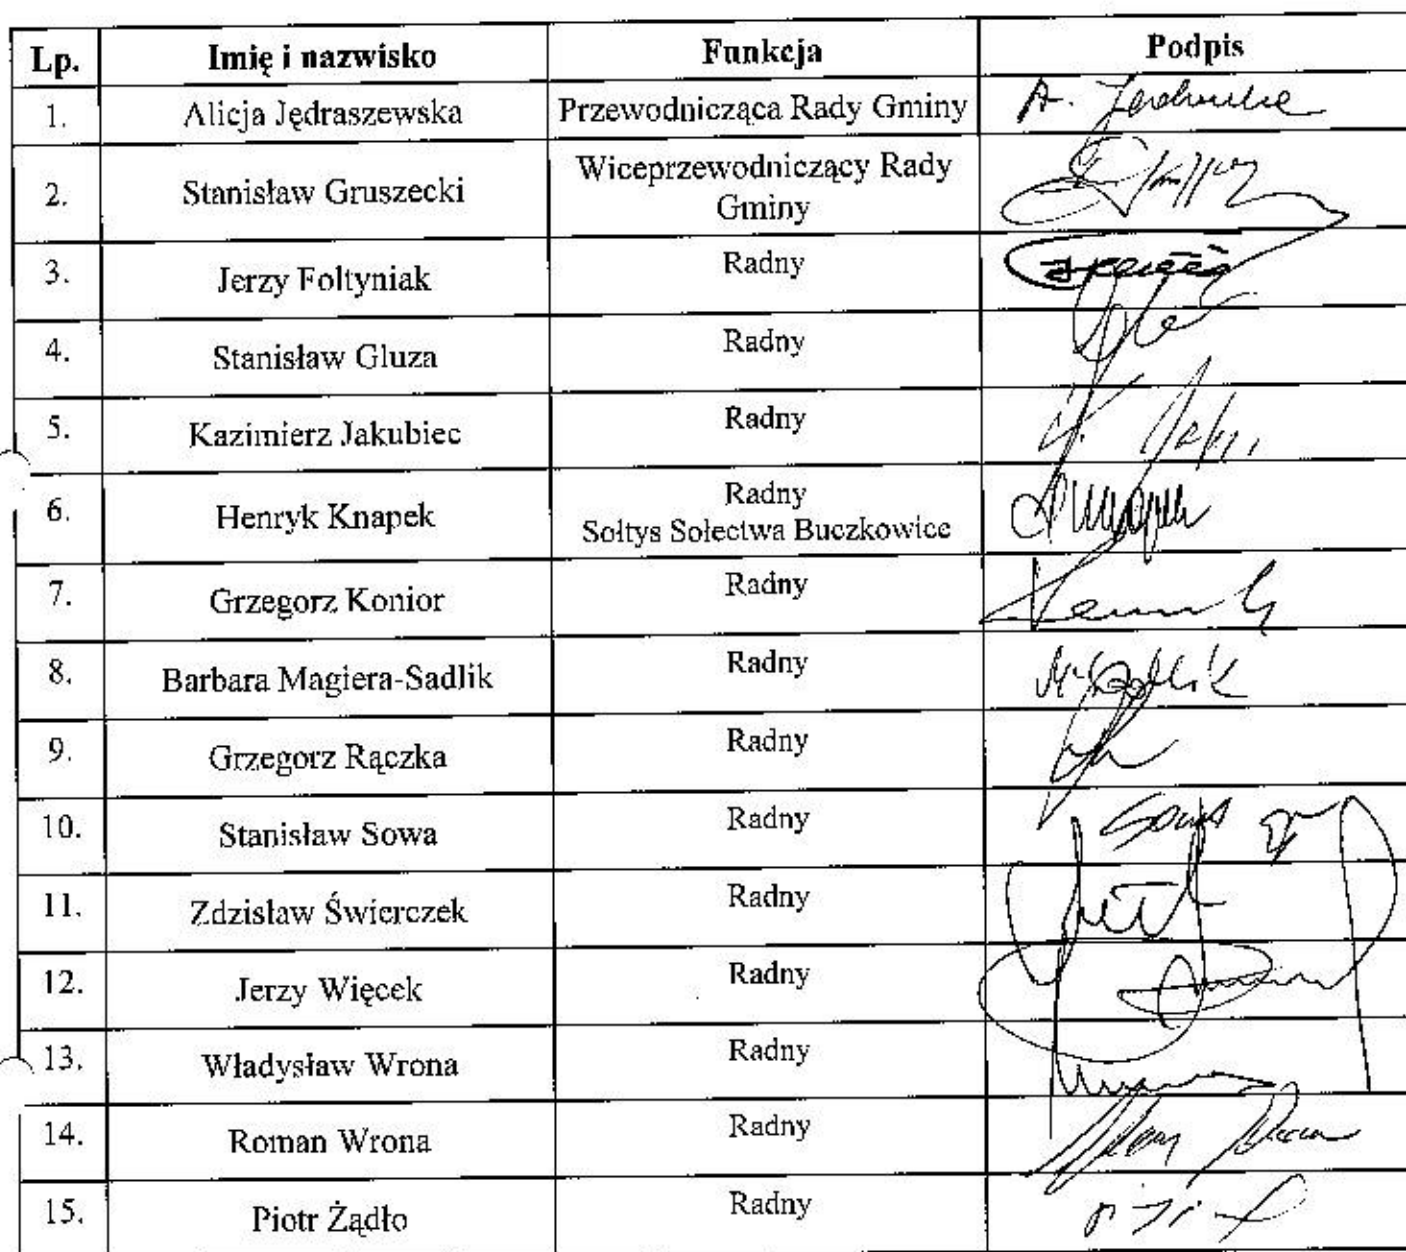 Lp. Imię i nazwisko Funkcja Podpis
1. Alicja Jędraszewska Przewodnicząca Rady Gminy
2. Stanisław Gruszecki Wiceprzewodniczący Rady
Gminy
3. Jerzy Foltyniak Radny
4. Stanisław Gluza Radny
5. Kazimierz Jakubiec Radny
6. Henryk Knapek Radny
Sołtys Sołectwa Buczkowice
7. Grzegorz Konior Radny
8. Barbara Magiera-Sadlik Radny
9. Grzegorz Rączka Radny
10. Stanisław Sowa Radny Sowa
11. Zdzisław Świerczek Radny
12. Jerzy Więcek Radny
13. Władysław Wrona Radny
14. Roman Wrona Radny
15. Piotr Żądło Radny